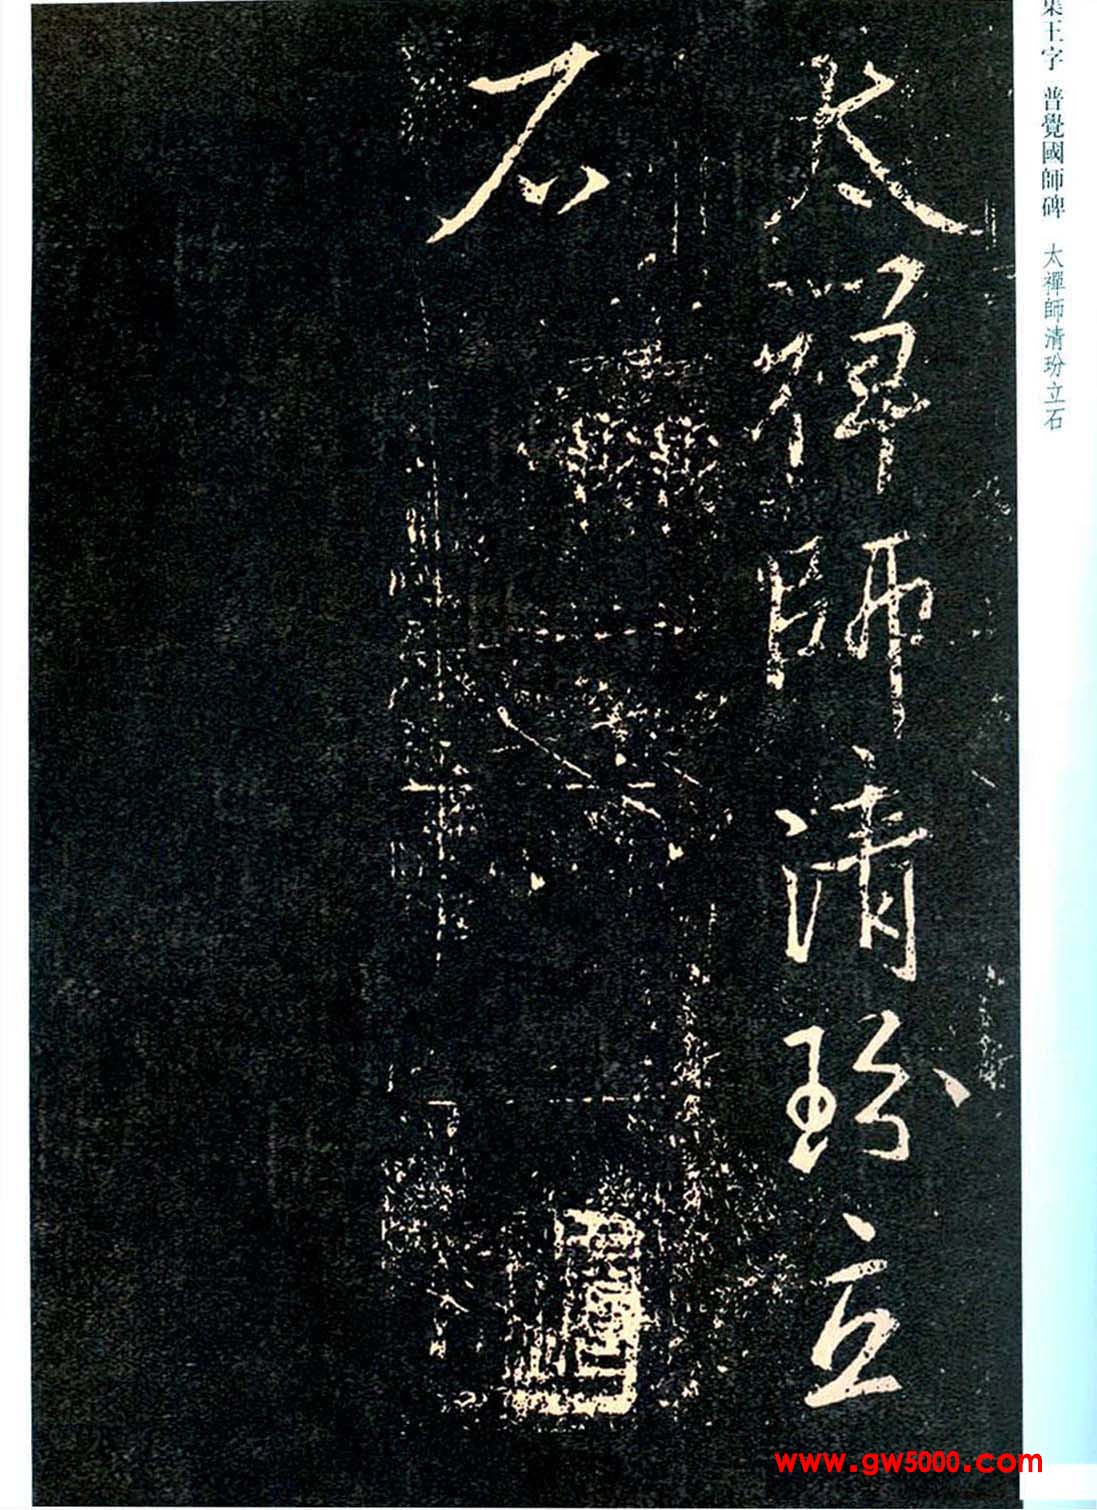 集王字 普覺國師碑 太禪師清玢立石
太禪師清玢立
石
www.gw5000.com